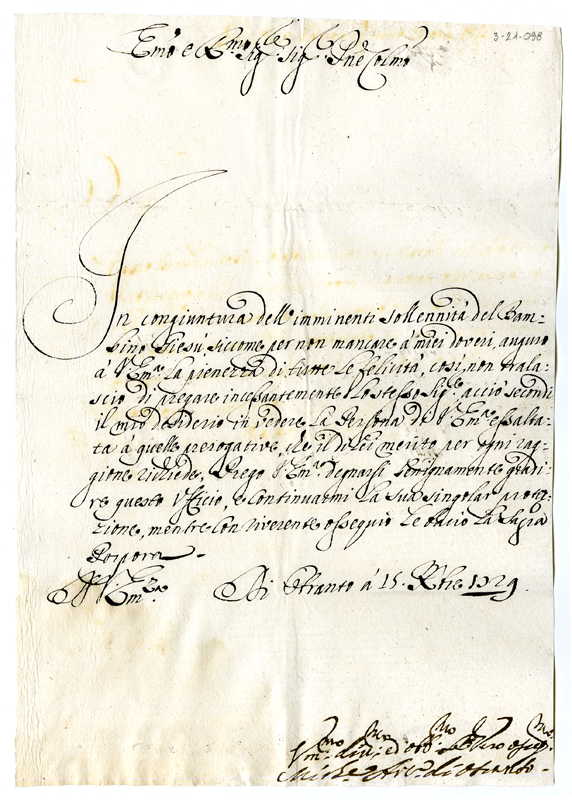 3-21-098
Emo e Rmo Sigre Sigre Pne Colmo
In congiuntura dell'imminenti sollennità del Bam=
bino Giesù, siccome per non mancare à miei doveri, auguro
à V. Emza la pienezza di tutte le felicità, così non trala=
scio di pregare incessantemente lo stesso Sigre acciò secondi
il mio desiderio in vedere la Persona di V. Emza essalta=
ta à quelle prerogative, che il di lei merito per ogni rag=
gione richiede. Prego V. Emza degnarsi benignamente gradi=
re questo Ufficio, e continuarmi la sua singolar prote=
zione, mentre con riverente ossequio le bacio la Sagra
Porpora -
Di V. Emza Di Otranto à 15. Xbre 1729.
Vmo divmo ed obmo
Arciv. di Otranto